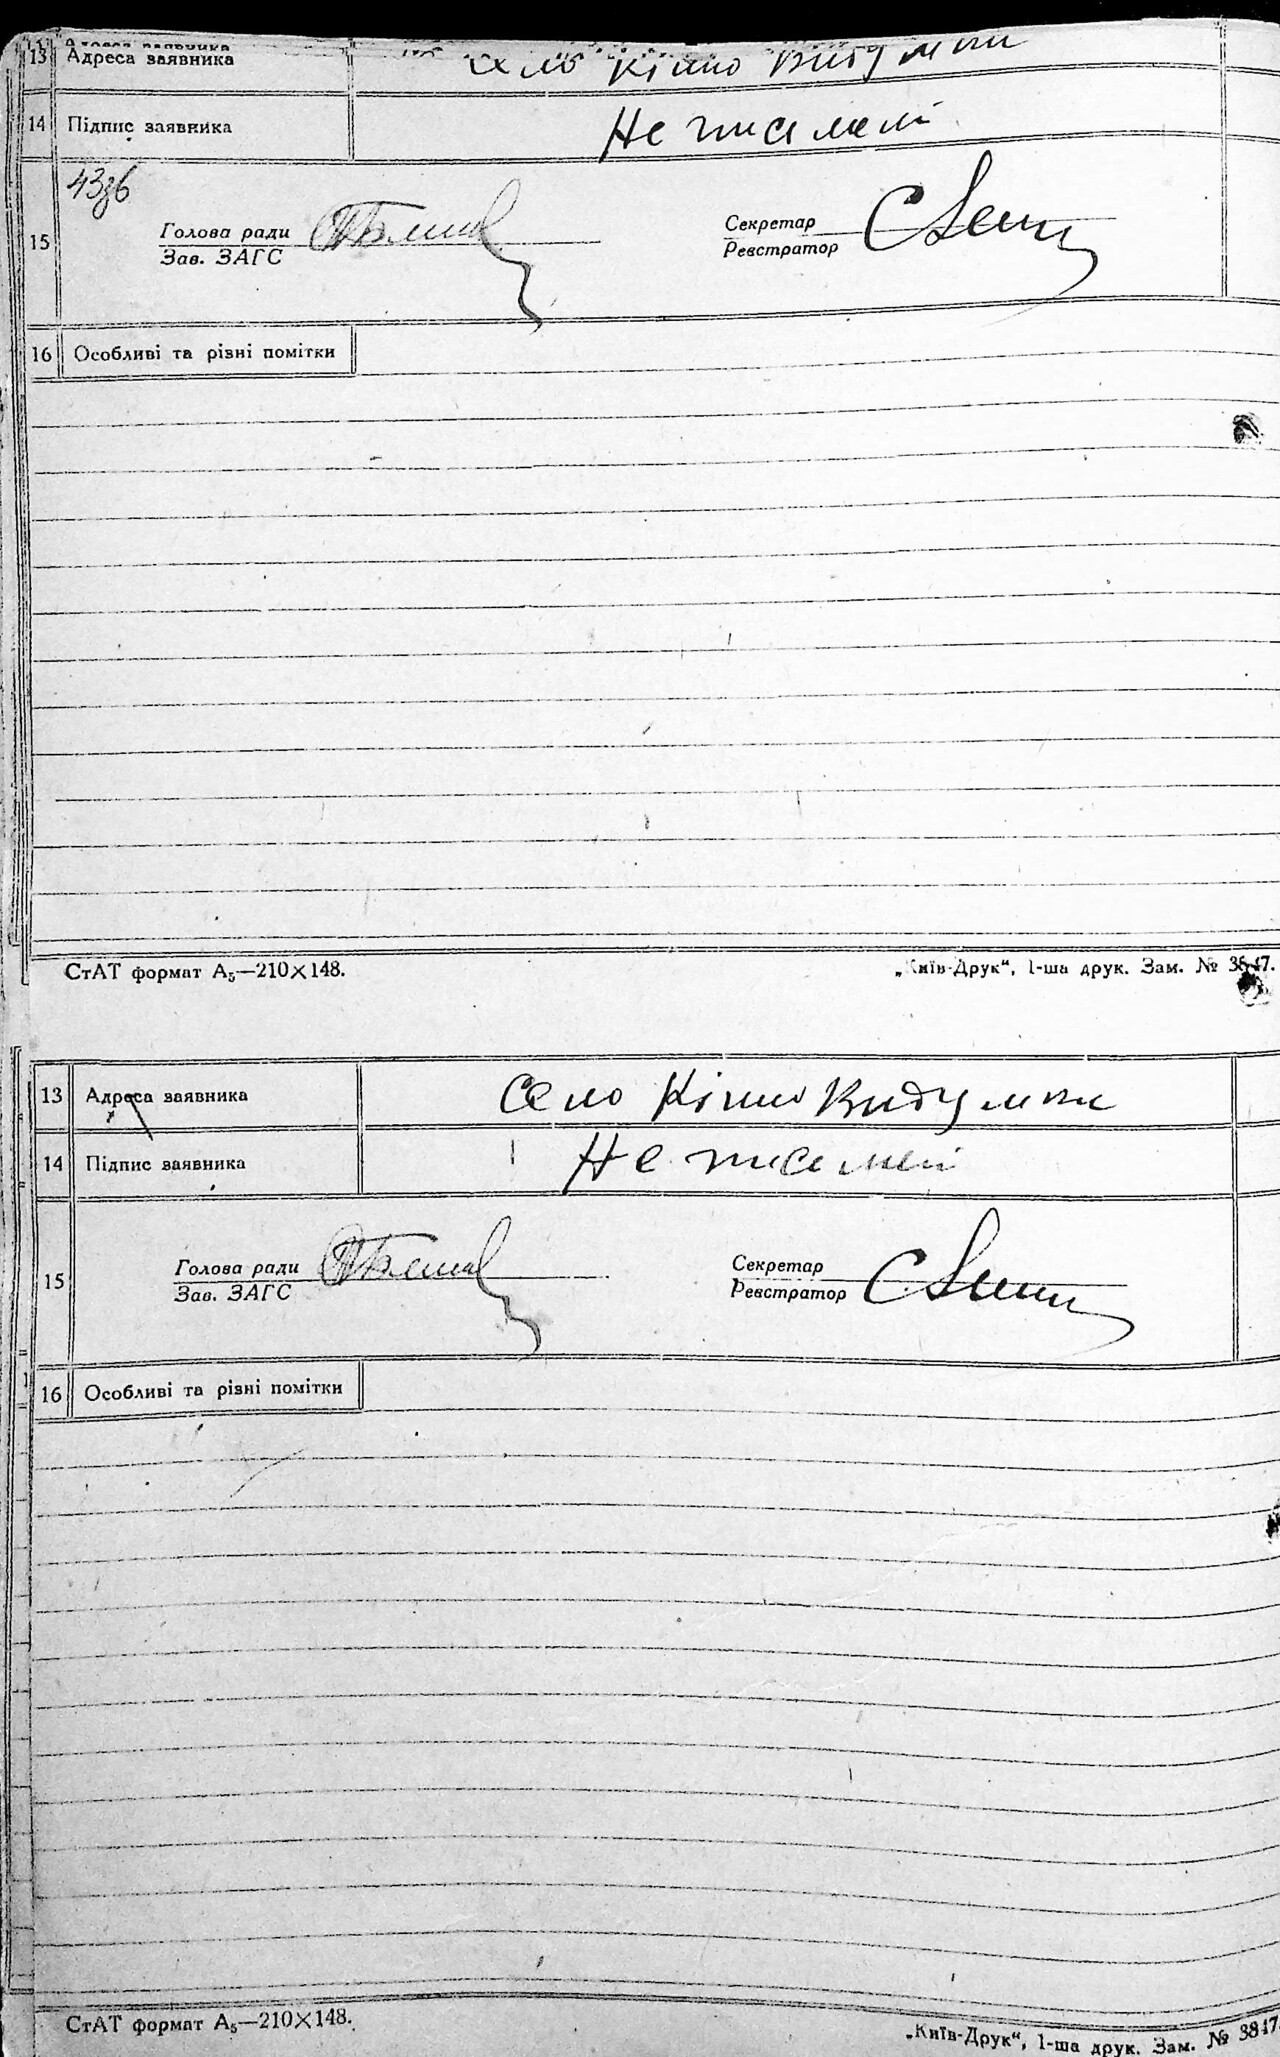 13 Адреса заявника село Кішно Видумки
14 Підпис заявника Не писемен
15
Голова ради
Зав. ЗАГС
Секретар
Реєстратор
16 Особливі та різні помітки
СтАТ формат А₅—210×148.
„Київ-Друк“, 1-ша друк. Зам. № 3847.
13 Адреса заявника Село Кішно Видумки
14 Підпис заявника Не писемен
15
Голова ради
Зав. ЗАГС
Секретар
Реєстратор
16 Особливі та різні помітки
СтАТ формат А₅—210×148.
„Київ-Друк“, 1-ша друк. Зам. № 3847.